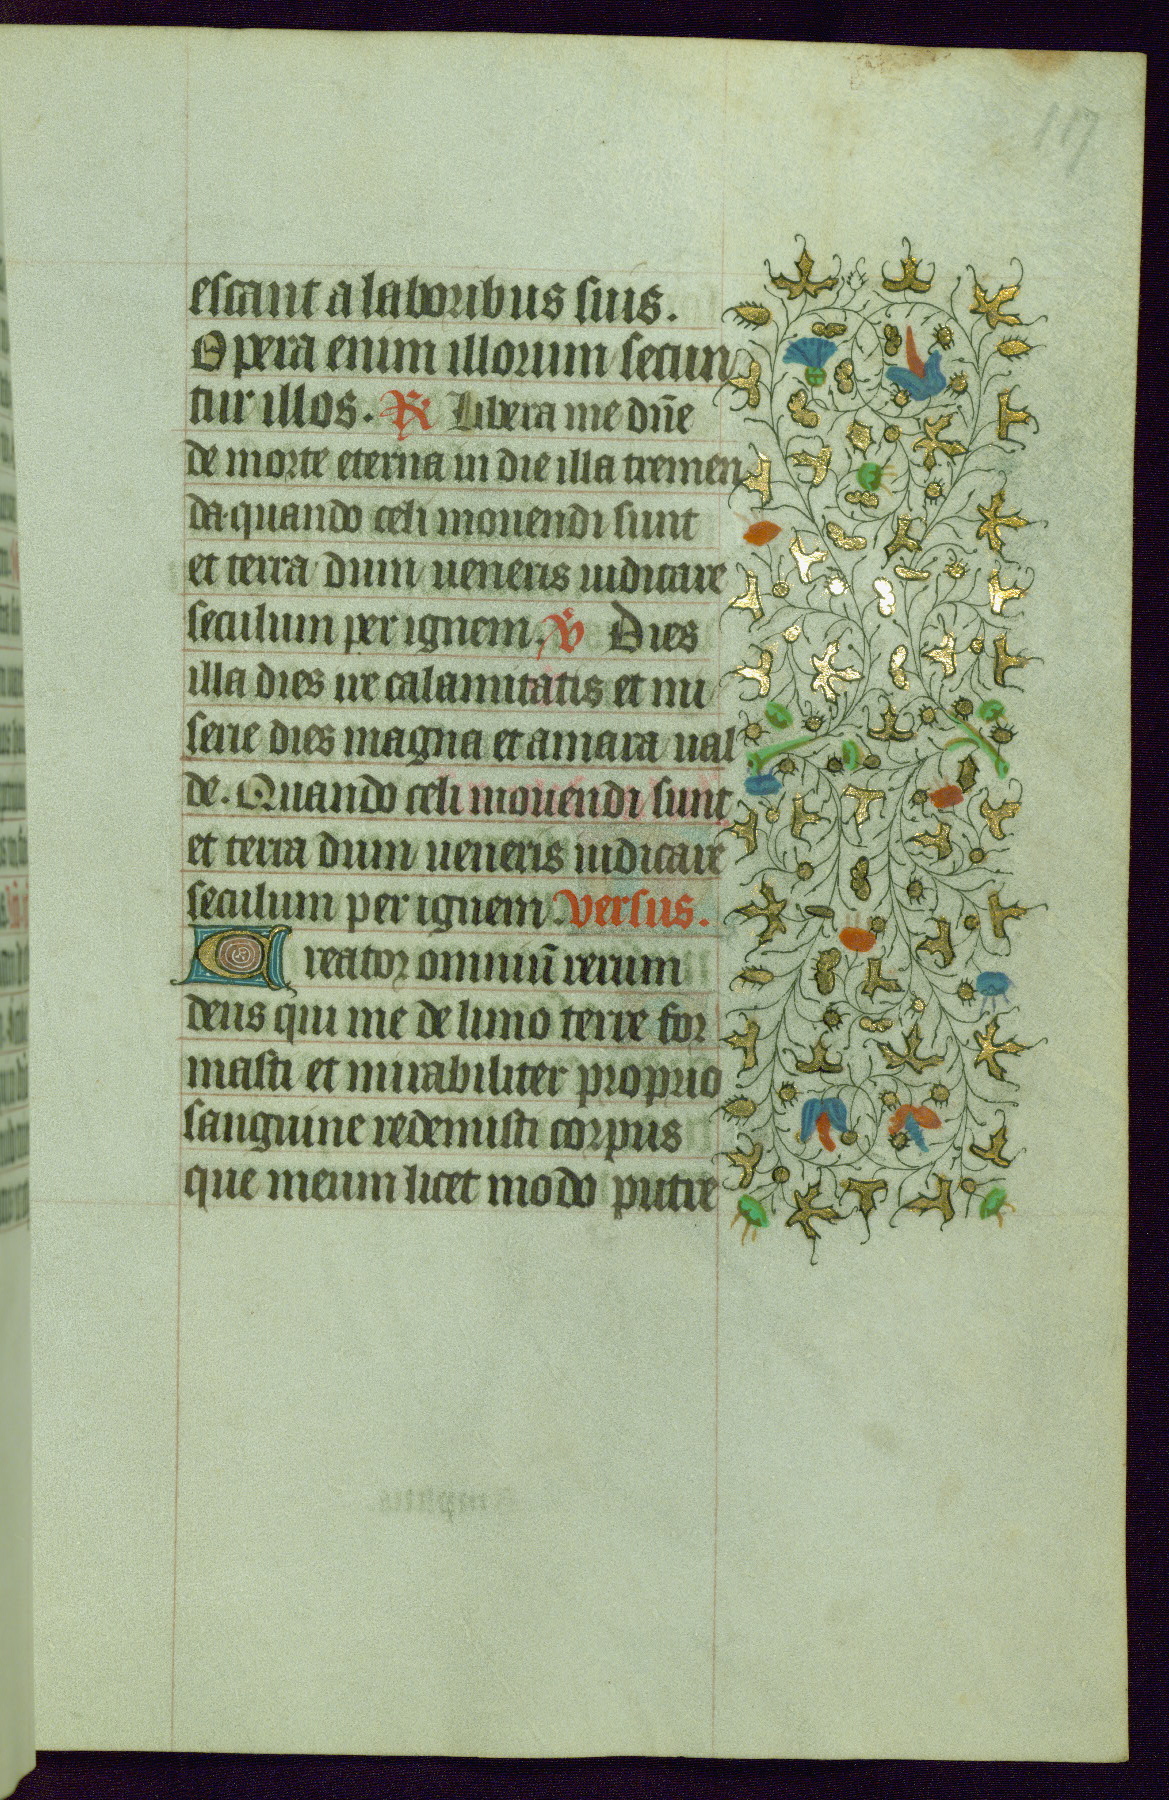 117
escant a laboribus suis.
Opera enim illorum secun
tur illos. R Libera me dn̄e
de morte eterna in die illa tremen
da quando celi mouendi sunt
et terra dum ueneris iudicare
seculum per ignem. V Dies
illa dies ire calamitatis et mi
serie dies magna et amara ual
de. Quando celi mouendi sunt
et terra dum ueneris iudicare
seculum per ignem Versus.
Creator omniū rerum
deus qui me de limo terre for
masti et mirabiliter proprio
sanguine redemisti corpus
que meum licet modo putre